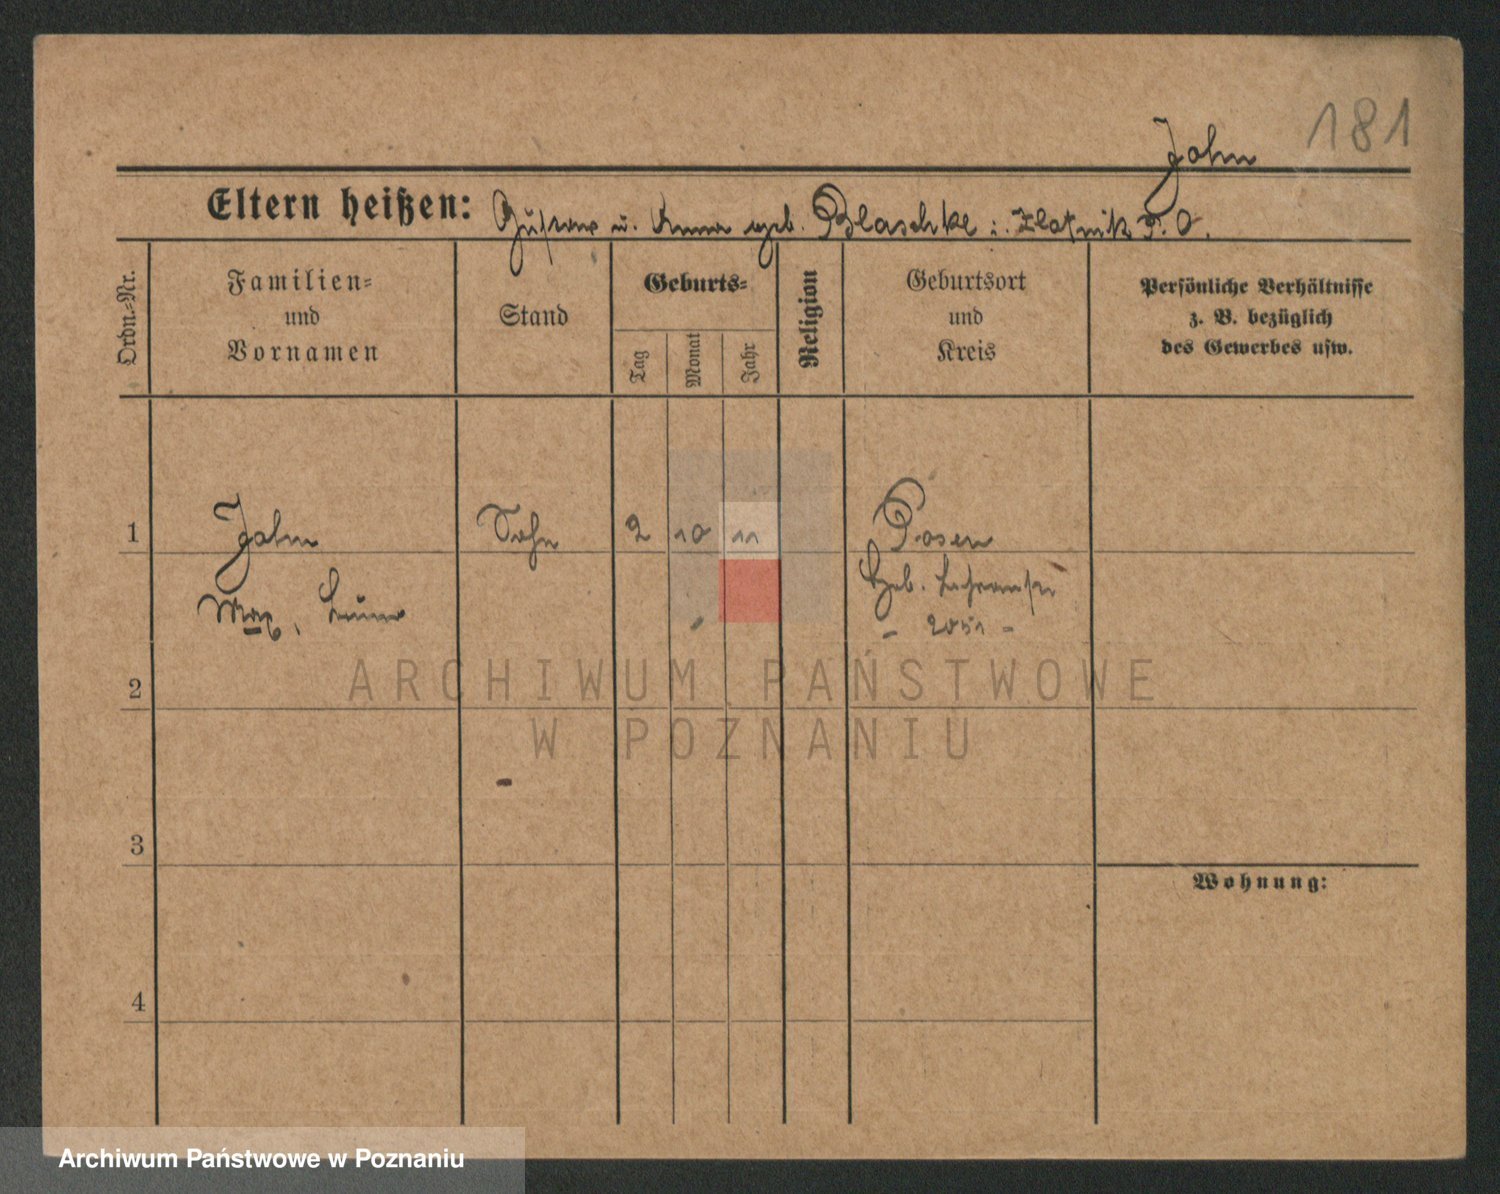 181
Jahn
Eltern heißen: Gustav u. Anna geb. Blaschke i. Zlotnik P. O.
Ordn.-Nr.
Familien-
und
Vornamen
Stand
Geburts-
Tag
Monat
Jahr
Religion
Geburtsort
und
Kreis
Persönliche Verhältnisse
z. B. bezüglich
des Gewerbes usw.
1 Jahn Sohn 2 10 11 Posen
Max, Geb.
- 2051 -
2
ARCHIWUM PAŃSTWOWE
W POZNANIU
3
Wohnung:
4
Archiwum Państwowe w Poznaniu